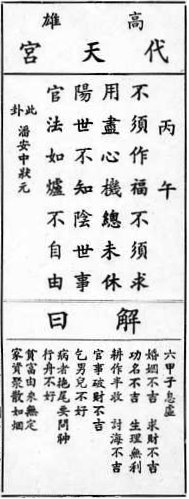 高雄
代天宮
丙午
不須作福不須求
用盡心機總未休
陽世不知陰世事
官法如爐不自由
此卦 潘安中狀元
解曰
六甲子息虛
婚姻不吉 求財不吉
功名不吉 生理無利
耕作半收 討海不吉
官事破財不吉
乞男兒不好
病者拖尾要問神
行舟不好
貧富由來無定
家資聚散如烟